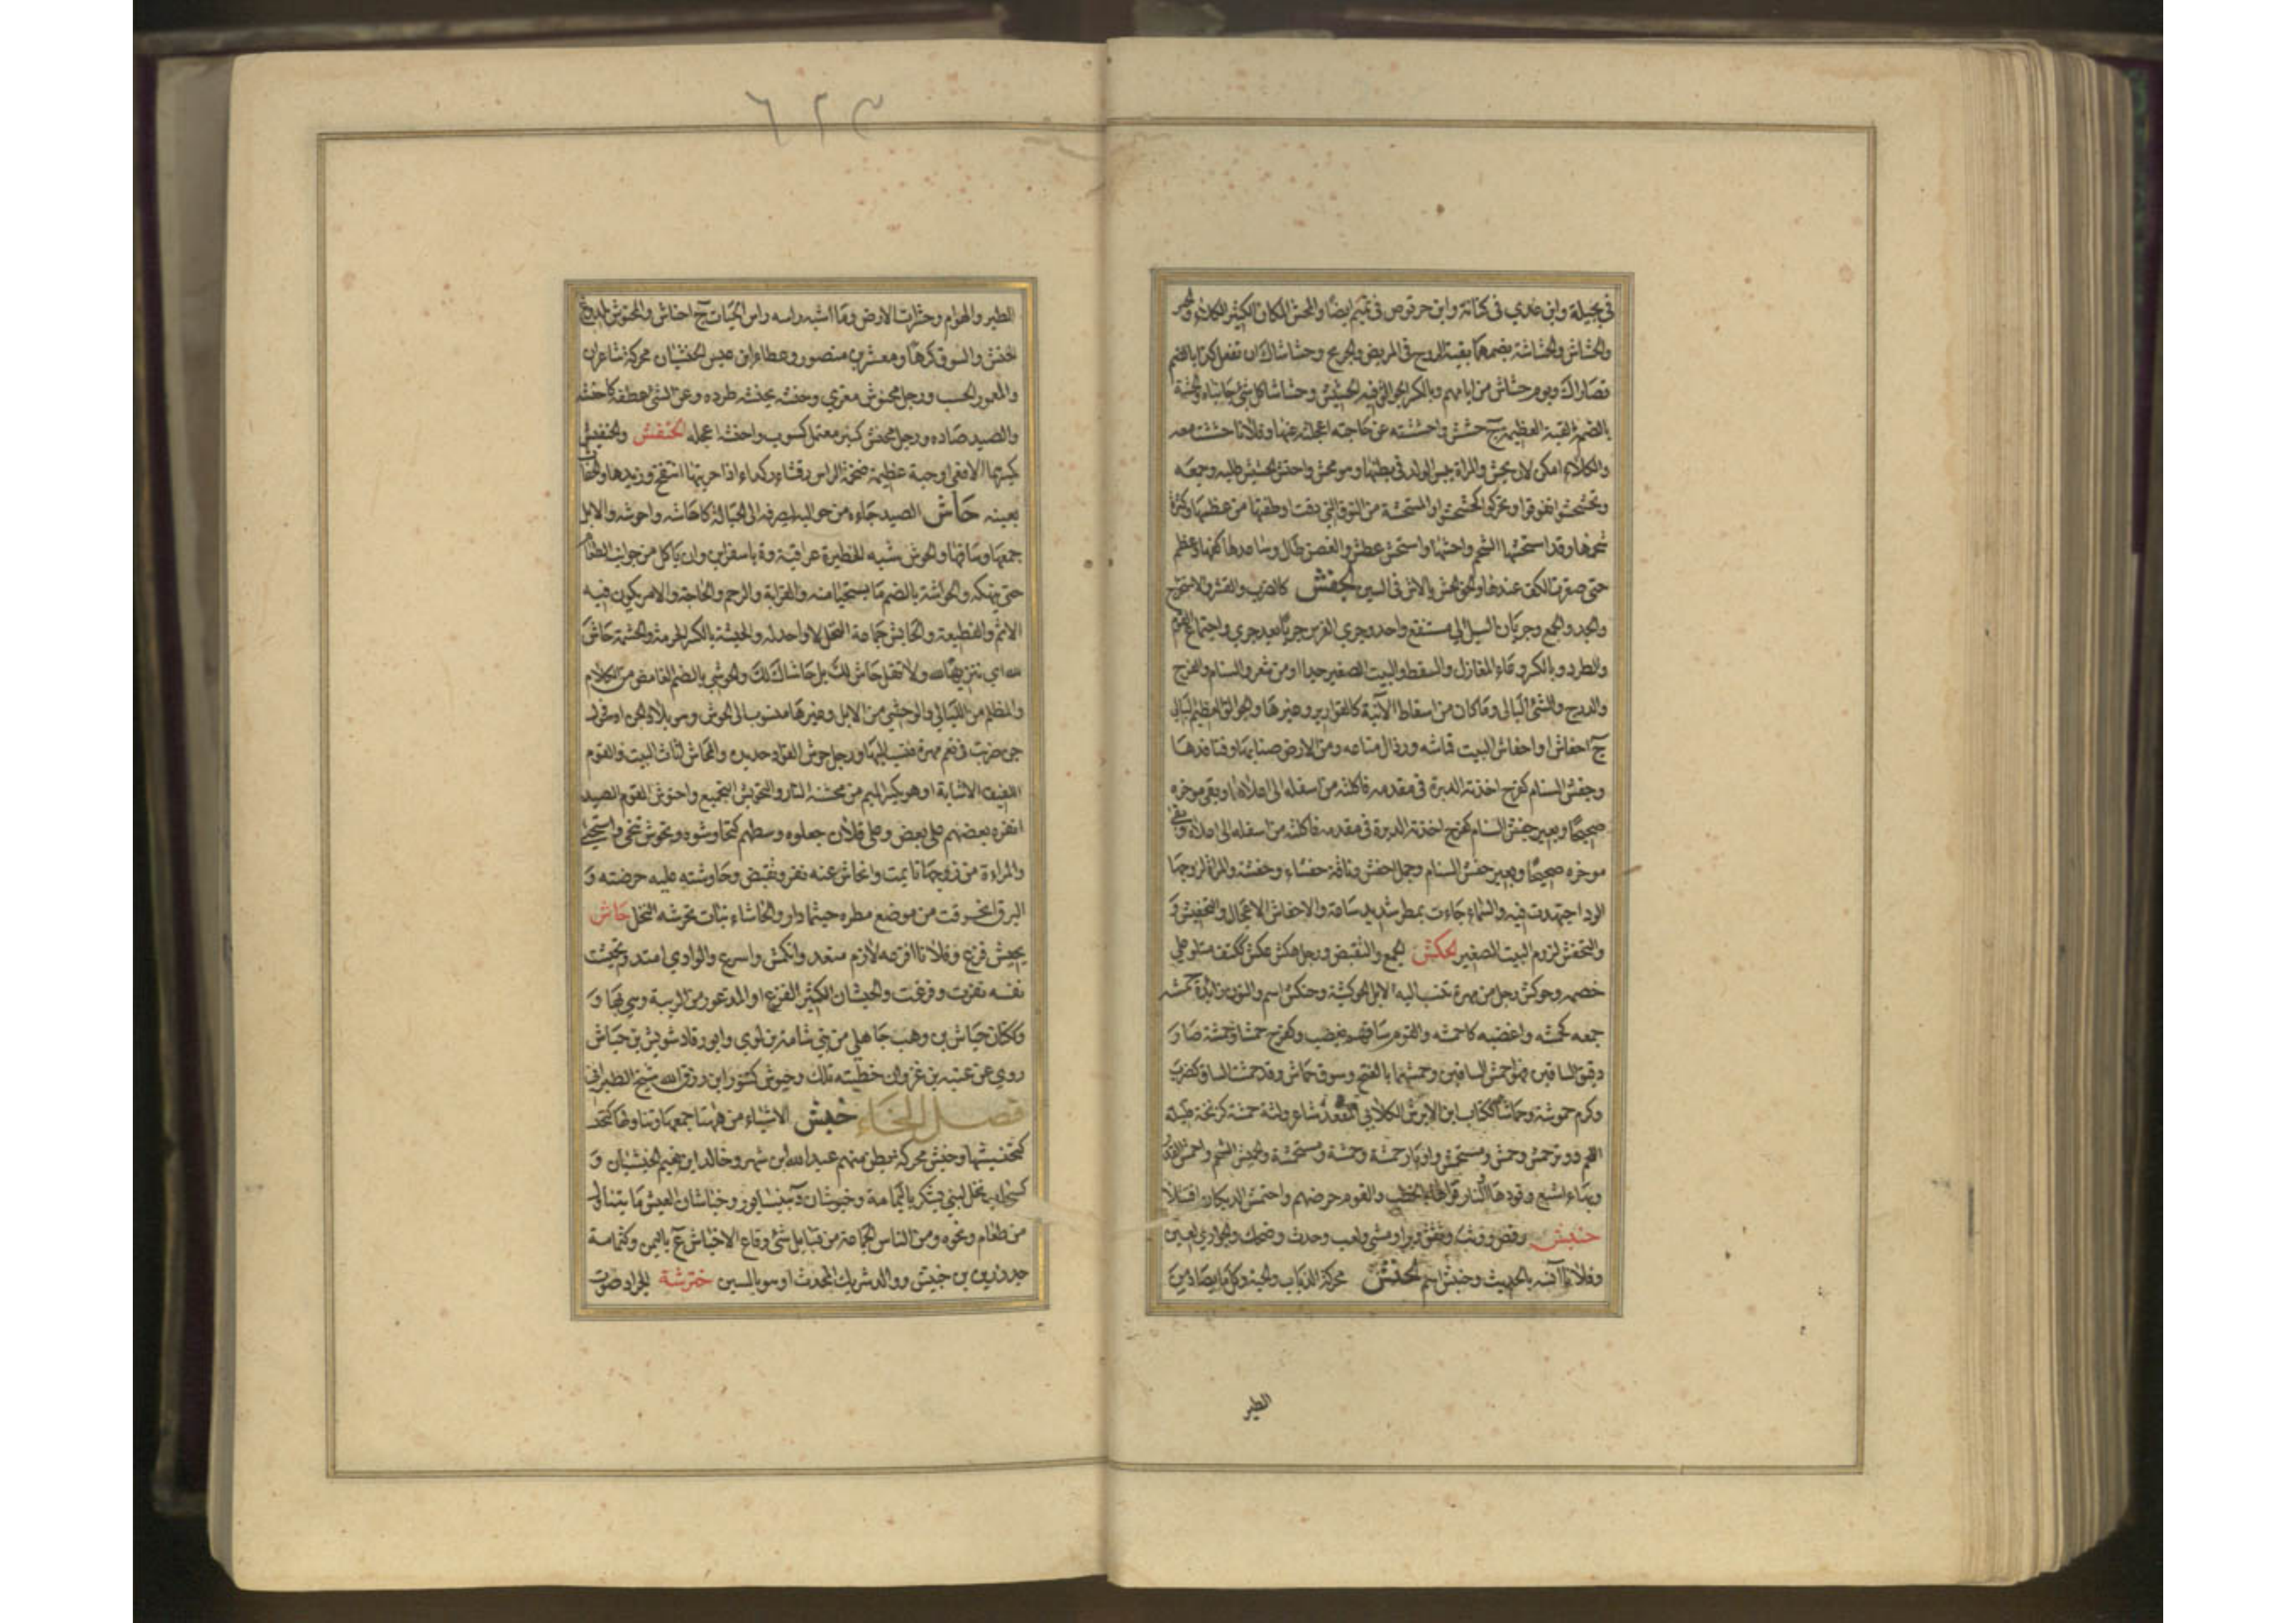 في بجيلة وابن عدي في كنانة وابن حرقوص في تميم ايضا والمحش المكان الكثير الكلاء و
والحشاش والحشاشة بضمهما بقية الروح في المريض والجريح وحشاشاك ان تفعل كذا بالضم
قصاراك ويوم حشاش من ايامهم وبالكسر الجوالق فيه الحشيش وحشاشا كل شئ جانباه والحشة
بالضم القبة العظيمة ج حشش واحششته عن حاجته اعجلته عنها وفلانا حششت معه
والكلاء امكن لان يحش والمراة يبس الولد في بطنها وهو محش واحتش الحشيش طلبه وجمعه
وتحشحشوا تفرقوا وتحركوا كحشحشوا والمستحشة من النوق التي دقت اوظفتها من عظمها وكثرة
شحمها وقد استحشها الشحم واحشها واستحش عطش والغصن طال وساعدها كفها عظم
حتى صغرت الكف عندها والحق الحش بالاش في السين الحفش كالضرب والقشر والاستخراج
والجد والجمع وجريان السيل الى مستنقع واحد وجري الفرس جريا بعد جري واجتماع القوم
والطرد وبالكسر وعاء المغازل والسفط والبيت الصغير جدا او من شعر والسنام والفرج
والدرج والشئ البالي وما كان من اسقاط الآنية كالقوارير وغيرها والجوالق العظيم البالي
ج احفاش او احفاش البيت قماشه ورذال متاعه ومن الارض ضبابها وقنافذها
وحفش السنام كفرح اخذته الدبرة في مقدمه فاكلته من اسفله الى اعلاه وبقي موخره
صحيحا وبعير حفش السنام كفرح اخذته الدبرة في مقدمه فاكلته من اسفله الى اعلاه وبقي
موخره صحيحا وبعير حفش السنام وجمل احفش وناقة حفشاء وحفشة والمراة لزوجها
الود اجتهدت فيه والسماء جاءت بمطر شديد ساعة والاحفاش الاعجال والتحفيش و
والتحفش لزوم البيت الصغير الحكش الجمع والتقبض ورجل حكش عكش ككتف ملتو على
خصمه وحوكش رجل من مهرة تنسب اليه الابل الحوكشية وحنكش اسم والنون زائدة حمشه
جمعه كحمشه واغضبه كاحمشه والقوم ساقهم بغضب وكفرح حمشا وحمشة صار
دقيق الساقين فهو احمش الساقين وحمشهما بالفتح وسوق حماش وقد حمشت الساق كضرب
وكرم حموشة وحماشا ككتاب ابن الابرش الكلابي المقعد شاعر ولثة حمشة كزنخة قليلة
اللحم ووتر حمش وحمش ومستحمش واوتار حمشة وحمشة ومستحمشة والحميش الشحم واحمش القدر
وبهاء اشبع وقودها والنار قواها بالحطب والقوم حرضهم واحتمش الديكان اقتتلا
حنبش رقص ووثب وصفق ونزا ومشى ولعب وحدث وضحك والجواري لعبن
وفلانا آنسه بالحديث وحنبش اسم الحنش محركة الذباب والحية وكل ما يصاد من
الطير
٦٢٣
الطير والهوام وحشرات الارض وما اشبه راسه راس الحيات ج احناش والمحنوش الملدوغ
الحنش والمسوق كرها ومعشر بن منصور وعطاء ابن عبس الحنشيان محركة شاعران
والمغموز الحسب ورجل محنوش مغرى وحنشه يحنشه طرده وعن الشئ عطفه كاحنشه
والصيد صاده ورجل محنش كمنبر معتمل كسوب واحنشه اعجله الحنفش والحنفيش
بكسرهما الافعى او حية عظيمة ضخمة الراس رقشاء كدراء اذا حربتها انتفخ وريدها والحفاث
بعينه حاش الصيد جاءه من حواليه ليصرفه الى الحبالة كاحاشه واحوشه والابل
جمعها وساقها والحوش شبه الحظيرة عراقية وة باسفراين وان ياكل من جوانب الطعام
حتى ينهكه والحواشة بالضم ما يستحيا منه والقرابة والرحم والحاجة والامر يكون فيه
الاثم والقطيعة والحايش جماعة النخل لا واحد له والحيشة بالكسر الحرمة والحشمة حاش
لله اي تنزيها لله ولا تقل حاش لك بل حاشاك لك والحوشي بالضم الغامض من الكلام
والمظلم من الليالي والوحشي من الابل وغيرها منسوب الى الحوش وهو بلاد الجن او فحول
جن ضربت في نعم مهرة فنسبت اليها ورجل حوش الفواد حديده والمحاش اثاث البيت والقوم
اللفيف الاشابة او هو بكسر الميم من محشته النار والتحويش التجميع واحتوش القوم الصيد
انفره بعضهم على بعض وعلى فلان جعلوه وسطهم كتحاوشوه وتحوش تنحى واستحيى
والمراءة من زوجها تايمت وانحاش عنه نفر وتقبض وحاوشته عليه حرضته و
البرق انحرفت من موضع مطره حيثما دار والحاشاء نبات تجرسه النحل حاش
يحيش فزع وفلانا افزعه لازم متعد وانكمش واسرع والوادي امتد وتحيشت
نفسه نفرت وفزعت والحيشان الكثير الفزع او المذعور من الريبة وهي بهاء و
وككتان حياش بن وهب جاهلي من بني سامة بن لوي وابو رقاد شويش بن حياش
روي عن عتبه بن غزوان خطبته تلك وحيوش كتنور ابن رزق الله شيخ الطبراني
فصل الخاء خبش الاشياء من ههنا جمعها وتناولها كخذ
كتخبشها وخبش محركة بطن منهم عبد الله ابن شهر وخالد ابن نعيم الخبشيان و
كسحاب نخل لبني يشكر باليمامة وخبوشان د بنيسابور وخباشات العيش ما يتناول
من طعام ونحوه ومن الناس الجماعة من قبايل شتى وقاع الاخباش ع باليمن وكثمامة
جد زر بن حبيش ووالد شريك المحدث او هو بالسين خترشة الجراد صوت